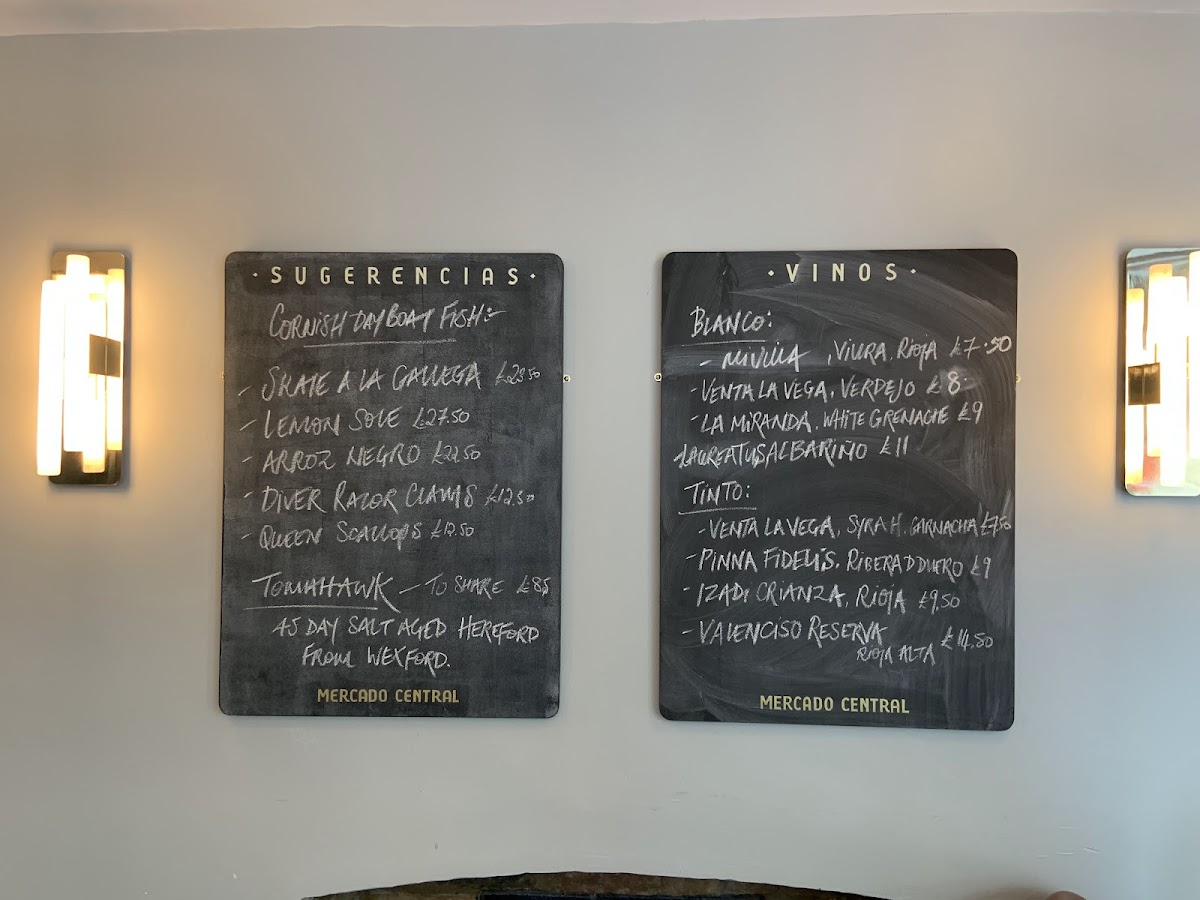 · SUGERENCIAS ·
CORNISH DAY BOAT FISH:-
- SKATE A LA GALLEGA
- LEMON SOLE £27.50
- ARROZ NEGRO £22.50
- DIVER RAZOR CLAMS £12.50
- QUEEN SCALLOPS £12.50
TOMAHAWK - TO SHARE £85
45 DAY SALT AGED HEREFORD
FROM WEXFORD.
MERCADO CENTRAL
· VINOS ·
BLANCO:
- , VIURA, RIOJA £7.50
- VENTA LA VEGA, VERDEJO £8
- LA MIRANDA, WHITE GRENACHE £9
- LAUREATUS ALBARIÑO £11
TINTO:
- VENTA LA VEGA, SYRAH, GARNACHA £7.50
- PINNA FIDELIS, RIBERA D DUERO £9
- IZADI CRIANZA, RIOJA £9,50
- VALENCISO RESERVA £14.50
RIOJA ALTA
MERCADO CENTRAL